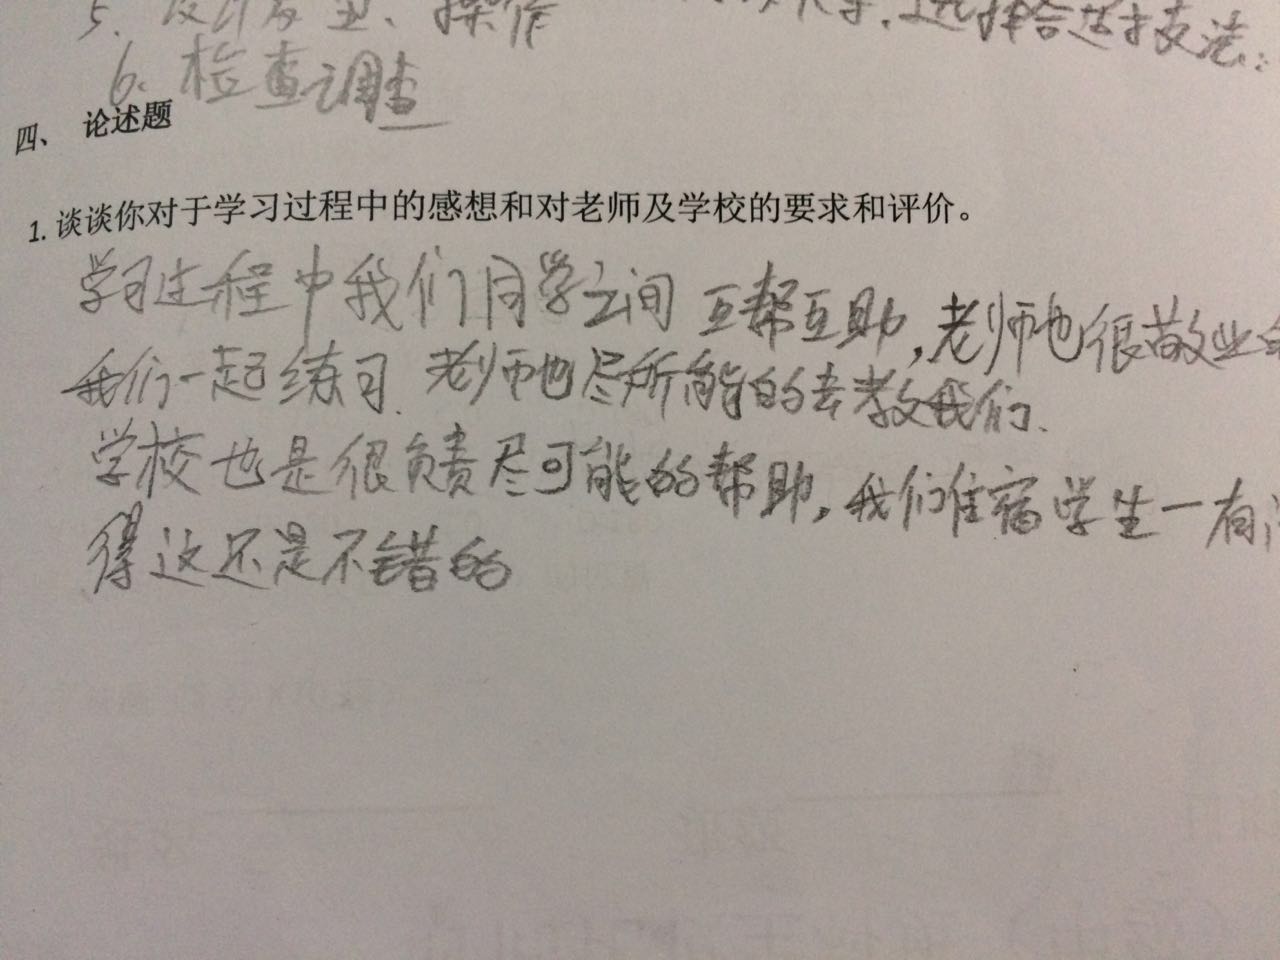 5. 设计发型、操作
选择合适技法:
6. 检查调查
四、 论述题
1. 谈谈你对于学习过程中的感想和对老师及学校的要求和评价。
学习过程中我们同学之间 互帮互助,老师也很敬业
我们一起练习. 老师也尽所能的去教我们.
学校也是很负责尽可能的帮助,我们住宿学生一有
得这还是不错的